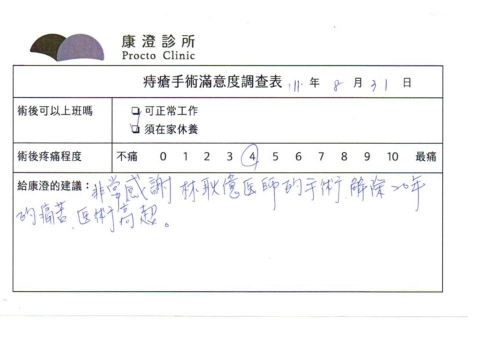 康澄診所
Procto Clinic
痔瘡手術滿意度調查表 111 年 8 月 31 日
術後可以上班嗎 可正常工作
須在家休養
術後疼痛程度 不痛 0 1 2 3 4 5 6 7 8 9 10 最痛
給康澄的建議：非常感謝林耿億医師的手術,解除20年
的痛苦,医術高超。